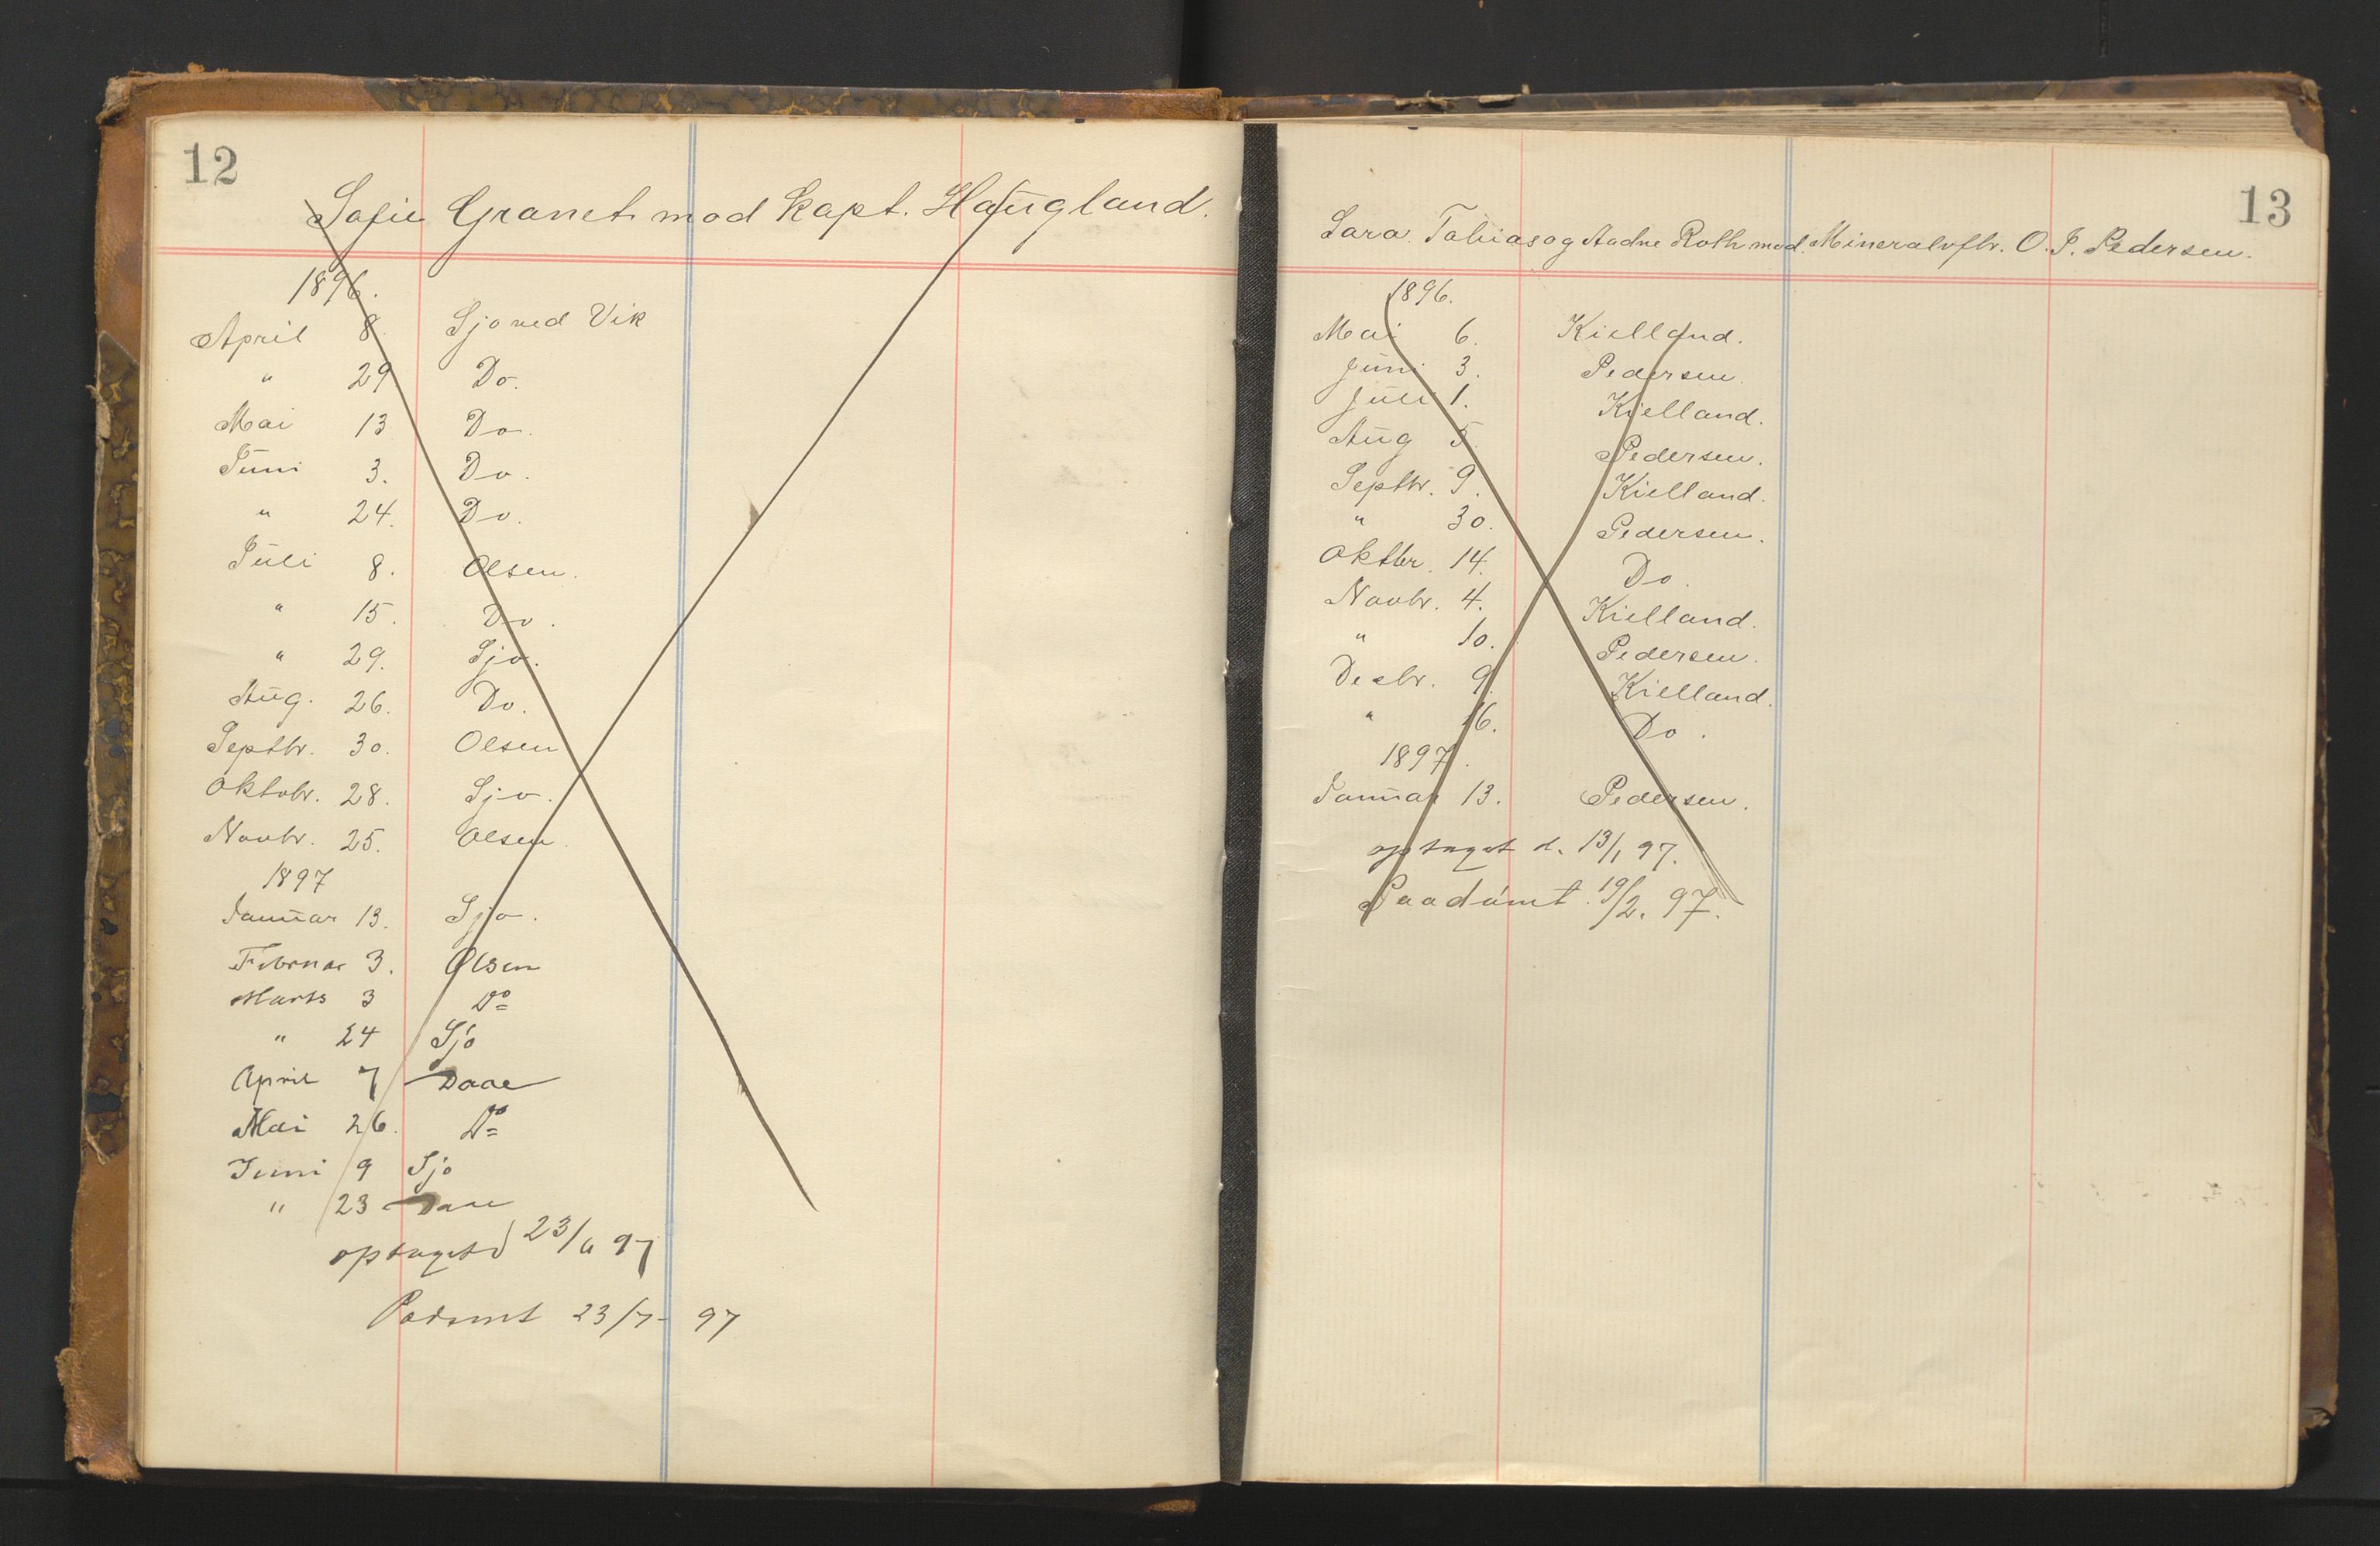 12
Sofie Granet mod Kapt. Haugland.
1896.
April 8. Sjo ved Vik
" 29. Do.
Mai 13 Do.
Juni 3. Do.
" 24. Do.
Juli 8. Olsen.
" 15. Do.
" 29. Sjo.
Aug. 26. Do.
Septbr. 30. Olsen
Oktobr. 28. Sjo.
Novbr. 25. Olsen.
1897
Januar 13. Sjo.
Februar 3. Olsen
Marts 3 Do
" 24 Sjo
April 7 Daae
Mai 26. Do
Juni 9 Sjo
" 23 Daae
optaget d 23/6 97
Padømt 23/7- 97
13
Sara. Tobias og Aadne Roth mod. Mineralvftbr. O. J. Pedersen.
1896.
Mai 6. Kielland.
Juni 3. Pedersen.
Juli 1. Kielland.
Aug 5. Pedersen.
Septbr. 9. Kielland.
" 30. Pedersen.
Oktbr. 14. Do.
Novbr. 4. Kielland.
" 10. Pedersen.
Desbr. 9. Kielland.
" 16. Do.
1897.
Januar 13. Pedersen.
optaget d. 13/1 97.
Paadømt. 19/2. 97.